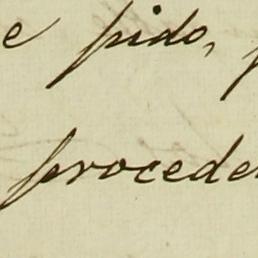 e pido,
proceder